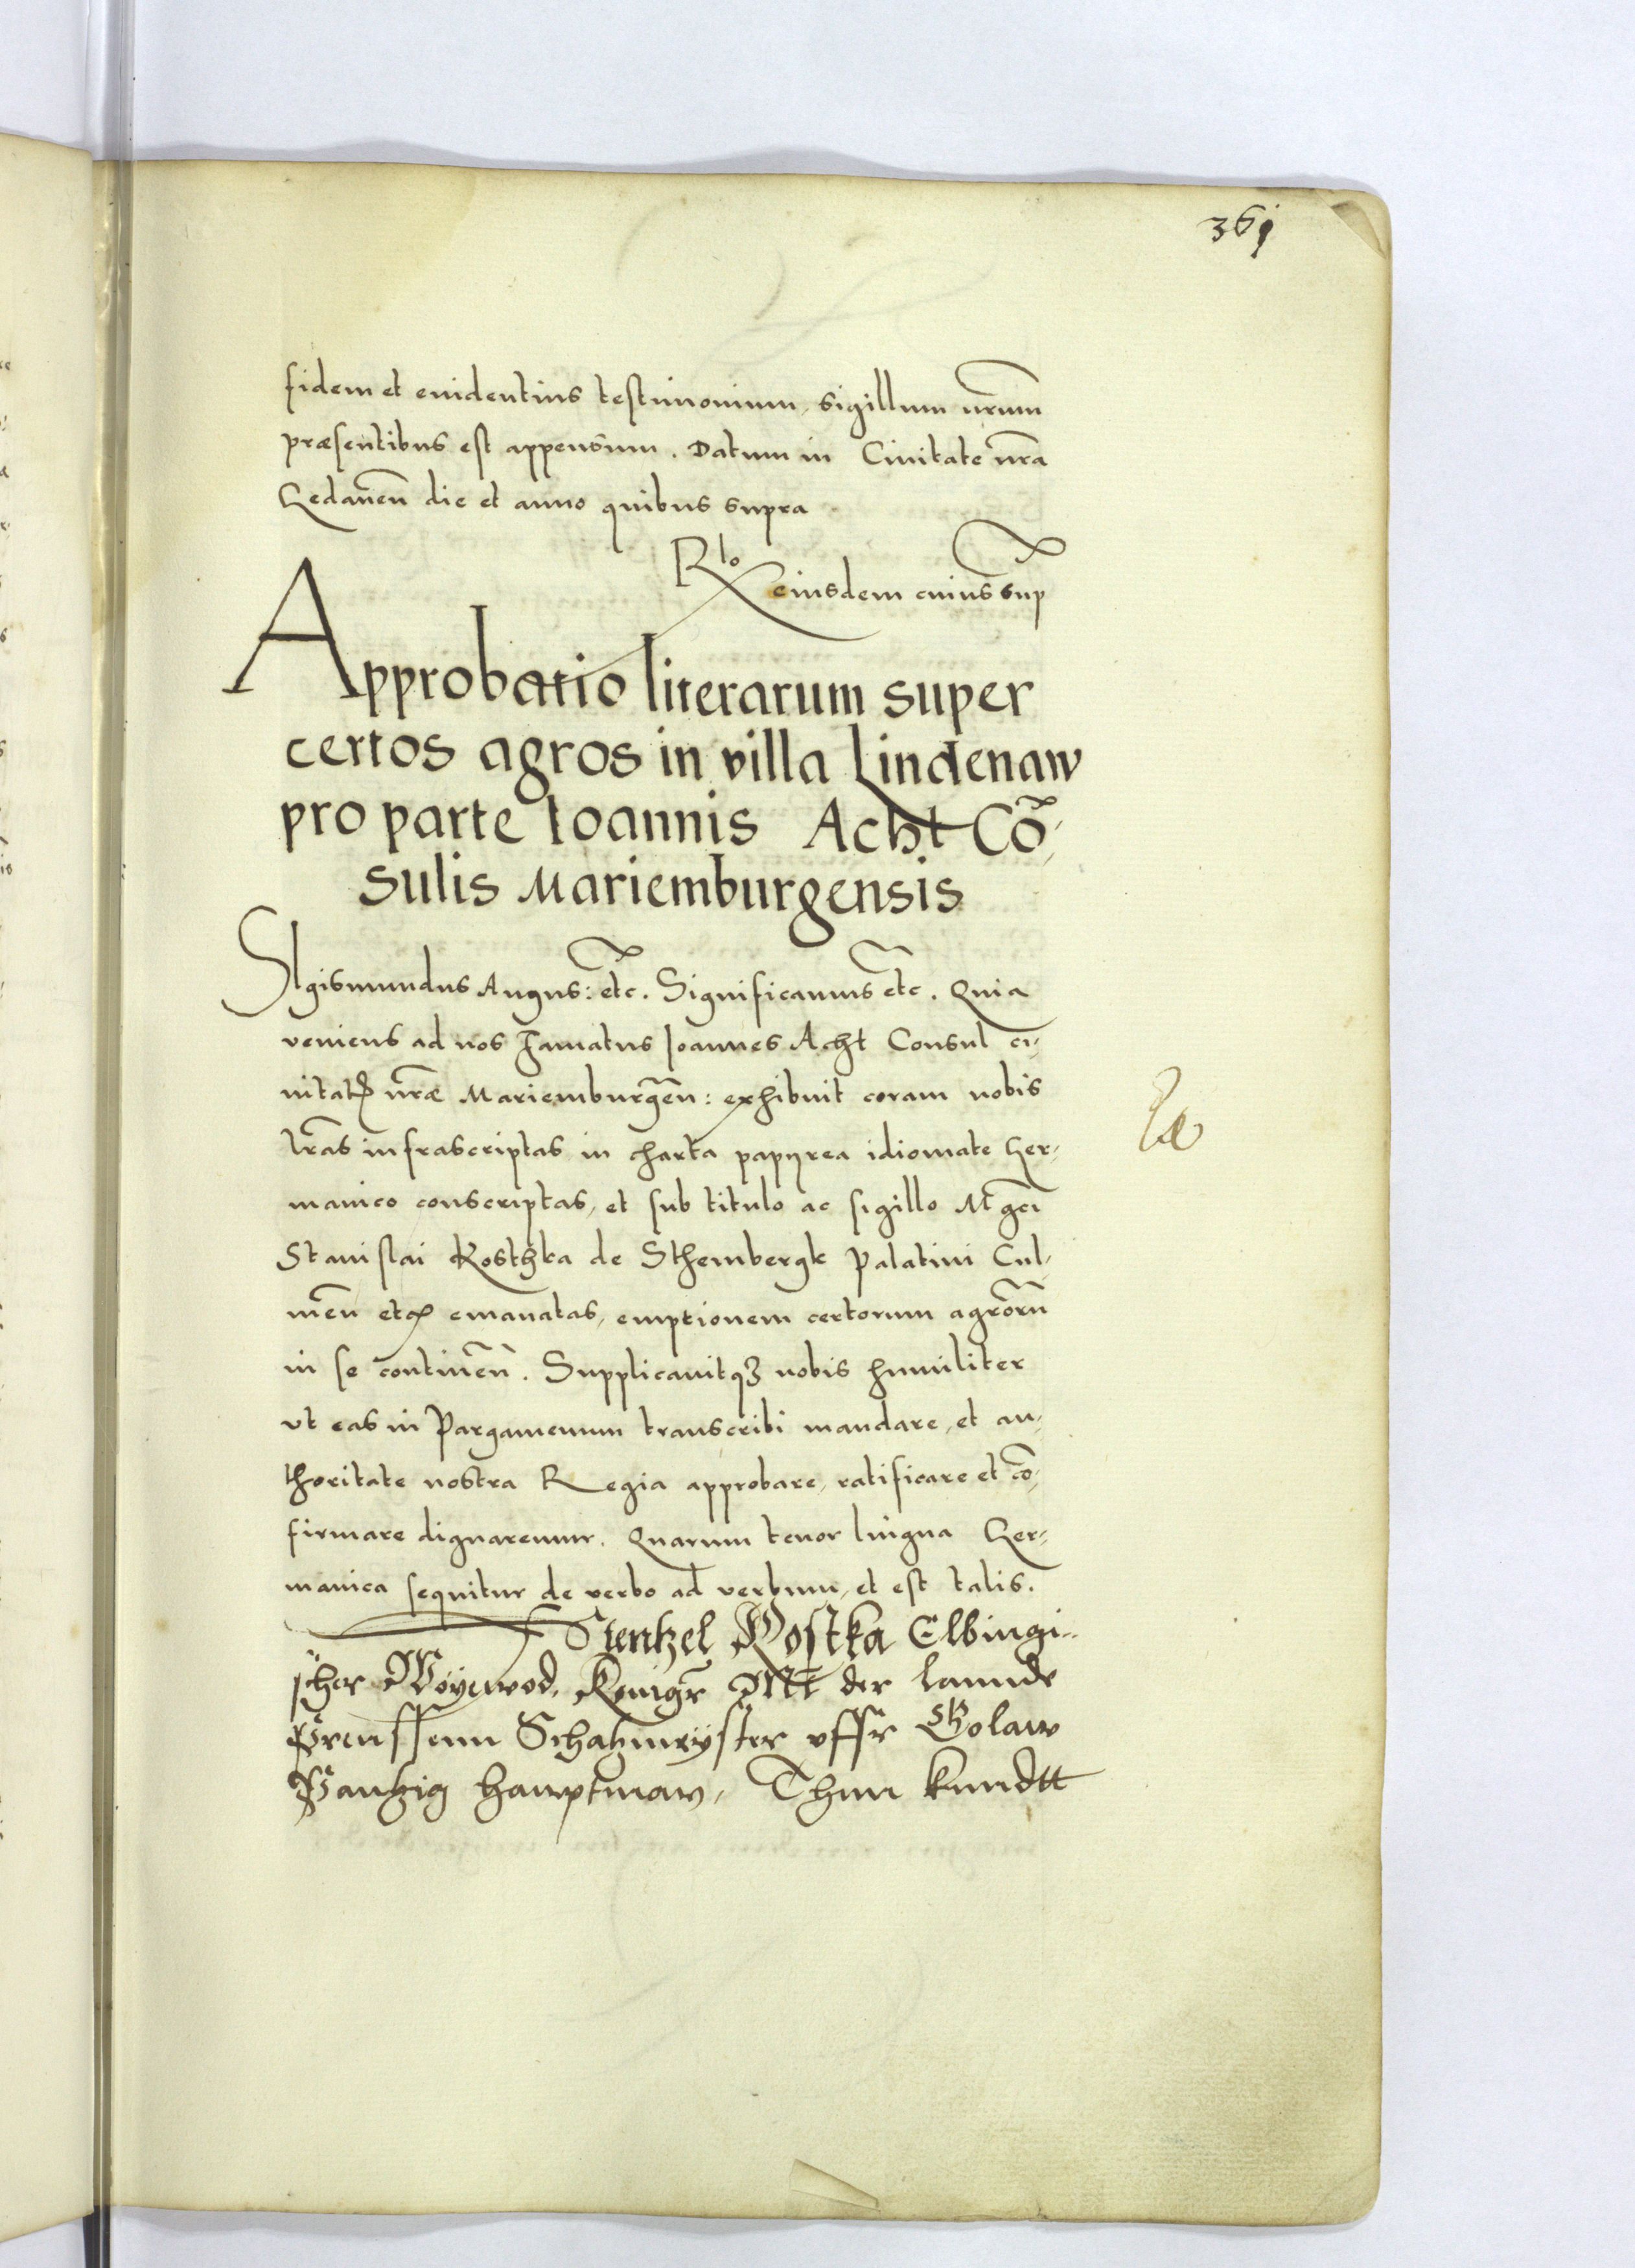 361
fidem et euidentius testimonium, sigillum nrũm
præsentibus est appensum. Datum in Ciuitate nrã
Gedaneñ die et anno quibus supra
Rlo
eiusdem cuius sup
Approbatio literarum super
certos agros in villa Lindenaw
pro parte Ioannis Acht Cõ-
sulis Mariemburgensis
SIgismundus Augus: etc. Significamus etc. Quia
veniens ad nos Famatus Ioannes Acht Consul ci-
uitatis nræ Mariemburgeñ: exhibuit coram nobis
lrãs infrascriptas in charta papyrea idiomate Ger-
manico conscriptas, et sub titulo ac sigillo Mgci
Stanislai Kosthka de Sthembergk Palatini Cul-
meñ etc emanatas, emptionem certorum agrorũ
in se contineñ. Supplicauitq3 nobis humiliter
vt eas in Pargamenum transcribi mandare, et au-
thoritate nostra Regia approbare, ratificare et cõ-
firmare dignaremur. Quarum tenor lingua Ger-
manica sequitur de verbo ad verbum, et est talis.
Stentzel Kostka Elbingi-
scher Woyewod, Konigr Mtt der Lannde
Preussenn Schatzmeyster vffr Golaw
Pautzig hauptman, Thun kundtt